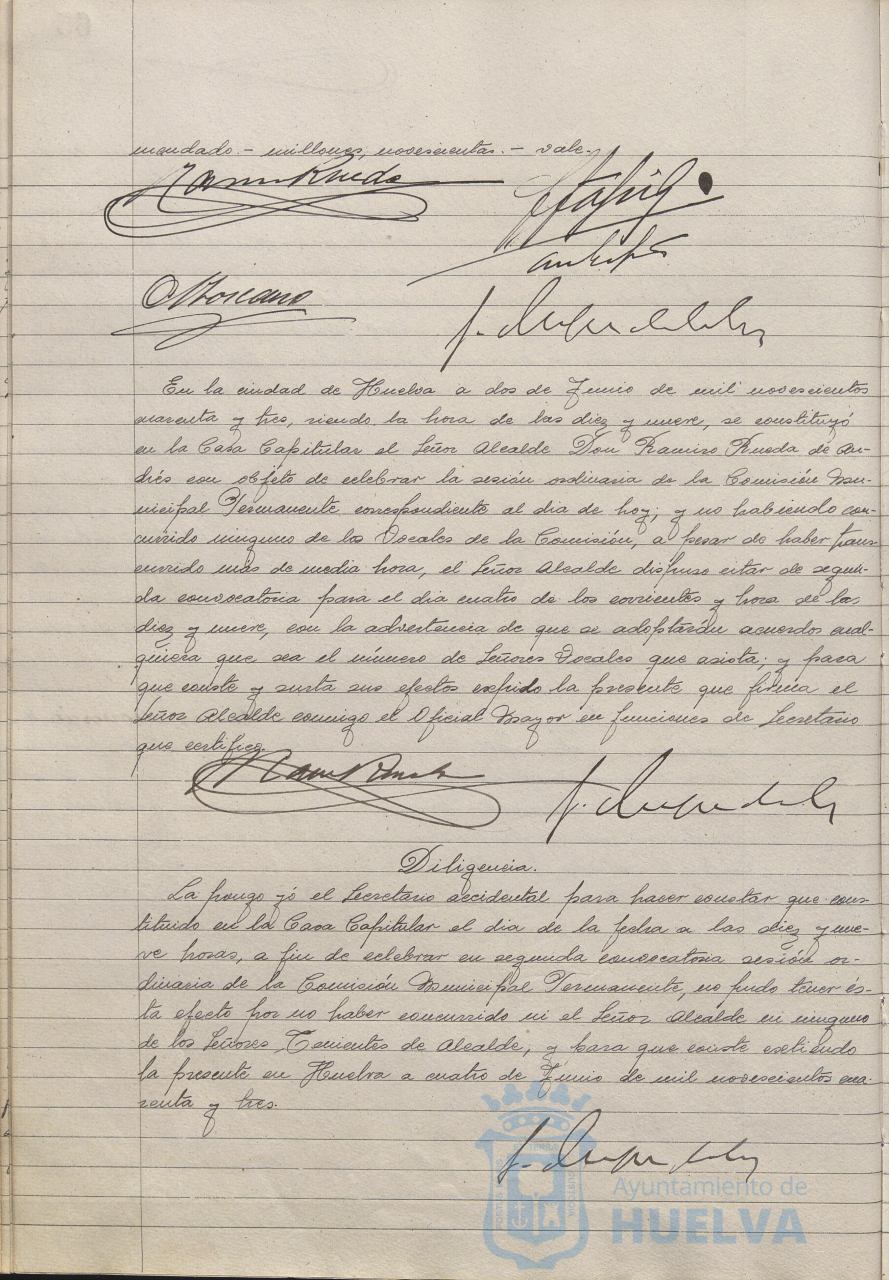 mendado.- millones, novescientas.- vale.
Ramiro Rueda
Toscano
En la ciudad de Huelva a dos de Junio de mil novescientos
cuarenta y tres, siendo la hora de las diez y nueve, se constituyó
en la Casa Capitular el Señor Alcalde Don Ramiro Rueda de An-
drés con objeto de celebrar la sesión ordinaria de la Comisión Mu-
nicipal Permanente correspondiente al dia de hoy; y no habiendo con-
currido ninguno de los Vocales de la Comisión, a pesar de haber trans-
currido más de media hora, el Señor Alcalde dispuso citar de segun-
da convocatoria para el dia cuatro de los corrientes y hora de las
diez y nueve, con la advertencia de que se adoptarán acuerdos cual-
quiera que sea el número de Señores Vocales que asista; y para
que conste y surta sus efectos expido la presente que firma el
Señor Alcalde conmigo el Oficial Mayor en funciones de Secretario
que certifico.
Ramiro Rueda
Diligencia.
La pongo yó el Secretario accidental para hacer constar que cons-
tituido en la Casa Capitular el dia de la fecha a las diez y nue-
ve horas, a fin de celebrar en segunda convocatoria sesión or-
dinaria de la Comisión Municipal Permanente, no pudo tener és-
ta efecto por no haber concurrido ni el Señor Alcalde ni ninguno
de los Señores Tenientes de Alcalde, y para que conste extiendo
la presente en Huelva a cuatro de Junio de mil novescientos cua-
renta y tres.
Ayuntamiento de
HUELVA